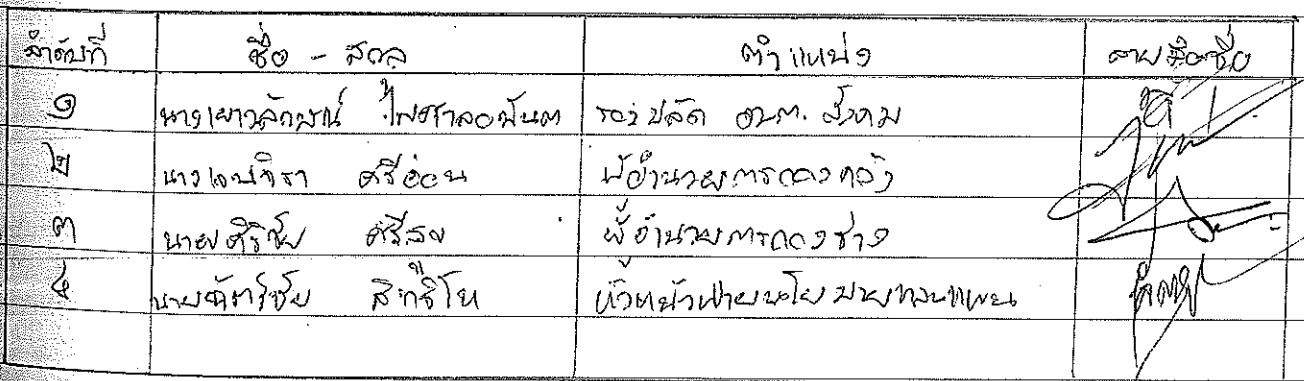 ลำดับที่ ชื่อ - สกุล ตำแหน่ง ลายมือชื่อ
๑ นางเยาวลักษณ์ ไพศาลอนันต รองปลัด อบต. สังคม
๒ นางเจนจิรา ศรีอ่อน ผู้อำนวยการกองคลัง
๓ นายศิริชัย ศรีสม ผู้อำนวยการกองช่าง
๔ นายฉัตร์ชัย สิทธิโห หัวหน้าฝ่ายนโยบายและแผน